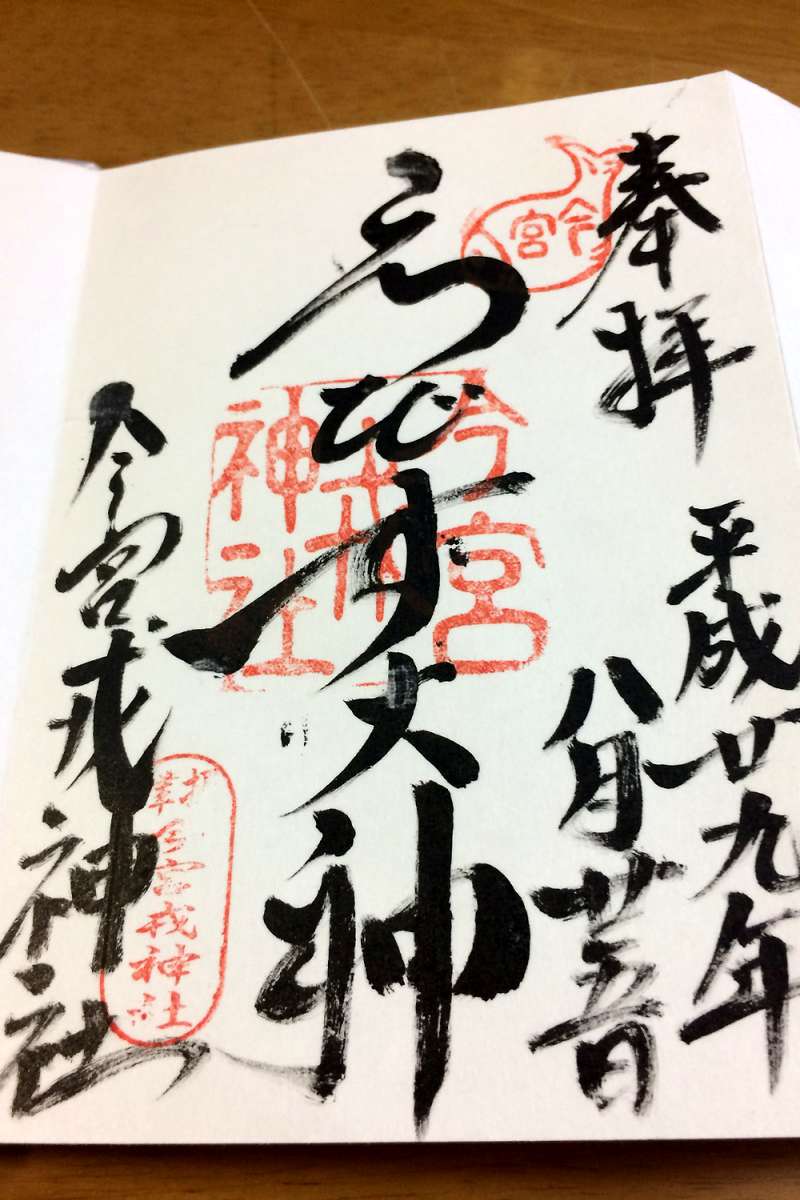 奉拝
今宮
平成廿九年
八月廿五日
ゑびす大神
今宮戎神社
今宮戎神社
宮戎神社